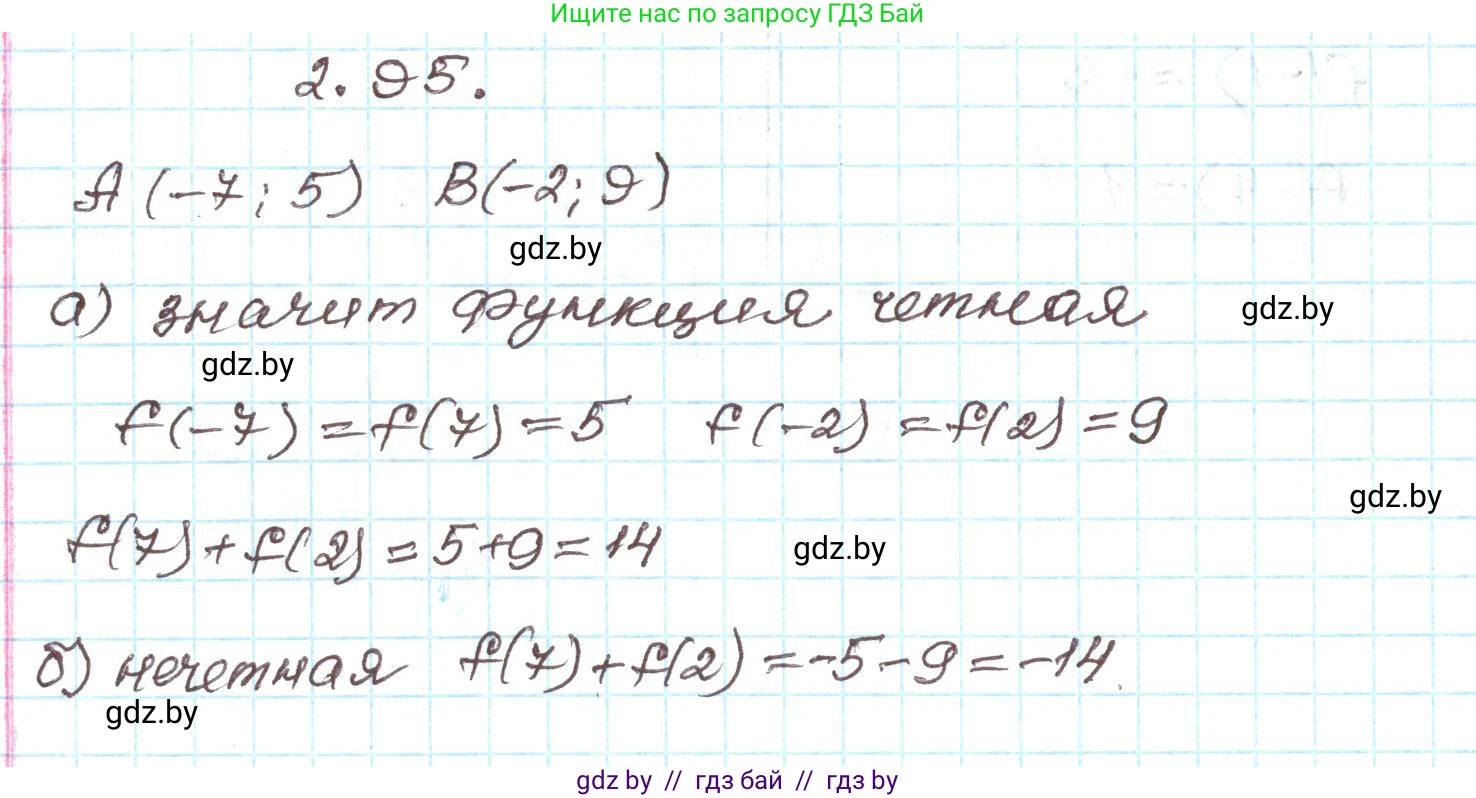 Ищите нас по запросу ГДЗ Бай
2.95.
A(-7; 5) B(-2; 9)
gdz.by
а) значит функция четная
gdz.by
gdz.by
f(-7) = f(7) = 5 f(-2) = f(2) = 9
gdz.by
f(7) + f(2) = 5+9 = 14
gdz.by
б) нечетная f(7) + f(2) = -5 - 9 = -14
gdz.by
gdz by // гдз бай // гдз by